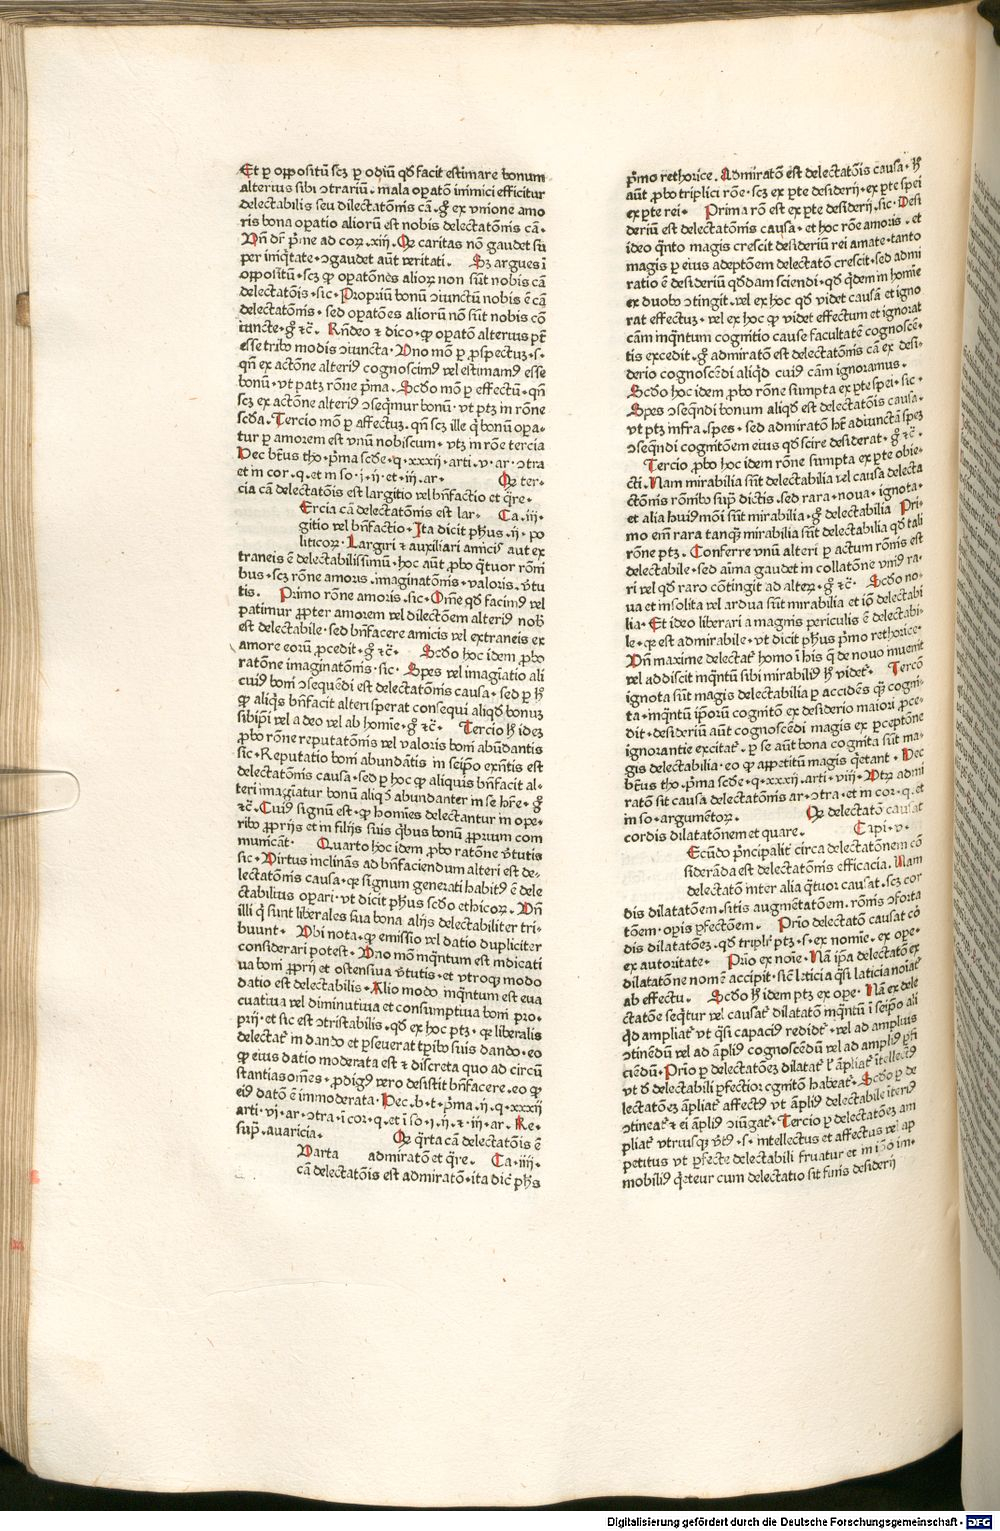 Et ꝑ oppositū scꝫ ꝑ odiū qđ facit estimare bonum
alterius sibi ↄtrariū. mala oꝑatō inimici efficitur
delectabilis seu dilectatōnis cā. gͦ ex vnione amo
ris bona oꝑatio aliorū est nobis delectatōnis cā.
Vn̄ dr̄ p̄me ad coꝝ. xiij. Qꝫ caritas nō gaudet su
per iniq̇tate. ↄgaudet aūt veritati. Sꝫ argues ī
oppositū. scꝫ ꝙ oꝑatōnes alioꝝ non sūt nobis cā
delectatōis. sic. Propriū bonū ↄiunctū nobis ē cā
delectatōnis. sed oꝑatōes aliorū nō sūt nobis cō
iuncte. gͦ ⁊c̄. Rn̄deo ⁊ dico. ꝙ oꝑatō alterius pt̄
esse tribꝰ modis ↄiuncta. Vno mō ꝑ ꝓspectuꝫ. s.
qn̄ ex actōne alteriꝰ cognoscimꝰ vel estimamꝰ esse
bonū. vt patꝫ rōne p̄ma. Scd̄o mō ꝑ effectū. qn̄
scꝫ ex actōne alteriꝰ ↄseq̇mur bonū. vt ptꝫ in rōne
scd̄a. Tercio mō ꝑ affectuꝫ. qn̄ scꝫ ille q̇ bonū oꝑa.
tur ꝑ amorem est vnū nobiscum. vtꝫ in rōne tercia
Hec bt̄us tho. p̄ma scd̄e. q. xxxij. arti. v. ar. ↄtra
et in cor. q. et in so. i. ij. et. iij. ar. Qꝫ ter.
cia cā delectatōis est largitio vel bn̄factio et q̄re.
Ercia cā delectatōnis est lar. Ca. iij.
gitio vel bn̄factio. Ita dicit phꝰs. ij. po
liticoꝝ. Largiri ⁊ auxiliari amicis aut ex
traneis ē delectabilissimū. hoc aūt ꝓbo q̇tuor rōni
bus. scꝫ rōne amoris. imaginatōnis. valoris. v̄tu
tis. Primo rōne amoris. sic. Om̄e qđ facimꝰ vel
patimur ꝓpter amorem vel dilectōem alteriꝰ nobꝭ
est delectabile. sed bn̄facere amicis vel extraneis ex
amore eorū ꝓcedit. gͦ ⁊c̄. Scd̄o hoc idem ꝓbo
ratōne imaginatōnis. sic. Spes vel imagīatio ali
cuiꝰ boni ↄsequēdi est delectatōnis causa. sed ꝑ hͦ
ꝙ aliq̇s bn̄facit alteri sperat consequi aliqđ bonuꝫ
sibiip̄i vel a deo vel ab homīe. gͦ ⁊c̄. Tercio hͦ ideꝫ
ꝓbo rōne reputatōnis vel valoris boni abūdantis
sic. Reputatio boni abundātis in seip̄o exn̄tis est
delectatōnis causa. sed ꝑ hoc ꝙ aliquis bn̄facit al.
teri imagīatur bonū aliqđ abundanter in se hr̄e. gͦ
⁊c̄. Cuiꝰ signū est. ꝙ homīes delectantur in ope.
ribꝰ ꝓprijs et in filijs suis q̇bus bonū ꝓprium com
municant. Quarto hoc idem ꝓbo ratōne v̄tutis
sic. Virtus inclinās ad bn̄faciendum alteri est de.
lectatōnis causa. qꝫ signum generati habitꝰ ē dele
ctabilius oꝑari. vt dicit phꝰs scd̄o ethicoꝝ. Vn̄
illi q̇ sunt liberales sua bona alijs delectabiliter tri.
buunt. Vbi nota. ꝙ emissio vel datio dupliciter
considerari potest. Vno mō mq̄ntum est indicati
ua boni ꝓprij et ostensiua v̄tutis. et vtroqꝫ modo
datio est delectabilis. Alio modo mq̄ntum est eua
cuatiua vel diminutiua et consumptiua boni pro.
prij. et sic est ↄtristabilis. qđ ex hoc ptꝫ. qꝫ liberalis
delectat̄ in dando et ꝑseuerat t̄pribꝰ suis dando. eo
ꝙ eius datio moderata est ⁊ discreta quo ad circū
stantias om̄es. ꝓdigꝰ vero desistit bn̄facere. eo ꝙ
eiꝰ datō ē immoderata. Hec. b. t. p̄ma. ij. q. xxxij
arti. vi. ar. ↄtra. ī cor. q. et ī so. i. ij. ⁊. iij. ar. Re.
sup̄. auaricia. Qꝫ q̄rta cā delectatōis ē
Varta admiratō et q̄re. Ca. iiij.
cā delectatōnis est admiratō. ita dic̄ phꝰs
p̄mo rethorice. Admiratō est delectatōis causa. hͦ
aūt ꝓbo triplici rōne. scꝫ ex ꝑte desiderij. ex ꝑte spei
ex ꝑte rei. Prima rō est ex ꝑte desiderij. sic. Desi
deriū est delectatōnis causa. et hoc rōne amoris. et
ideo q̄nto magis crescit desideriū rei amate. tanto
magis ꝑ eius adeptōem delectatō crescit. sed admi
ratio ē desideriū qđdam sciendi. qđ q̇dem in homīe
ex duobꝰ ↄtingit. vel ex hoc qđ videt causā et igno
rat effectuꝫ. vel ex hoc ꝙ videt effectum et ignorat
cām mq̄ntum cognitio cause facultatē cognoscē.
tis excedit. gͦ admiratō est delectatōnis cā ex desi.
derio cognoscēdi aliqđ cuiꝰ cām ignoramus.
Scd̄o hoc idem ꝓbo rōne sumpta ex ꝑte spei. sic.
Spes ↄseq̄ndi bonum aliqđ est delectatōis causa.
vt ptꝫ infra. spes. sed admiratō hꝫ adiunctā speꝫ
ↄseq̄ndi cognitōem eius qđ scire desiderat. gͦ ⁊c̄.
Tercio ꝓbo hoc idem rōne sumpta ex ꝑte obie.
cti. Nam mirabilia sūt delectabilia vel causa delecta
ctōnis rōnibꝰ sup̄ dictis. sed rara. noua. ignota.
et alia huiꝰmōi sūt mirabilia. gͦ delectabilia Pri.
mo em̄ rara tanq̄ꝫ mirabilia sūt delectabilia qđ tali
rōne ptꝫ. Conferre vnū alteri ꝑ actum rōnis est
delectabile. sed aīma gaudet in collatōne vniꝰ ra.
ri vel qđ raro cōtingit ad alteꝝ. gͦ ⁊c̄. Scd̄o no.
ua et insolita vel ardua sūt mirabilia et iō delectabi
lia. Et ideo liberari a magnis periculis ē delectabi.
le. qꝫ est admirabile. vt dicit phꝰs p̄mo rethorice.
Vn̄ maxime delectat̄ homo ī his q̄ de nouo inuenit
vel addiscit mq̄ntū sibi mirabiliꝰ hͦ videt̄. Tercō
ignota sūt magis delectabilia ꝑ accidēs q̄ꝫ cogni.
ta. mq̄ntū ip̄orū cognitō ex desiderio maiori ꝓce.
dit. desideriū aūt cognoscēdi magis ex ꝑceptōne
ignorantie excitat̄. ꝑ se aūt bona cognita sūt ma.
gis delectabilia. eo ꝙ appetitū magis q̇etant. Hec
bt̄us tho. p̄ma scd̄e. q. xxxij. arti. viij. Vtꝝ admi
ratō sit causa delectatōnis ar. ↄtra. et in cor. q. et
in so. argumētoꝝ. Qꝫ delectatō causat
cordis dilatatōnem et quare. Capi. v.
Ecūdo p̄ncipalit̄ circa delectatōnem cō
siderāda est delectatōnis efficacia. Nam
delectatō inter alia q̇tuor causat. scꝫ cor
dis dilatatōem. sitis augmētatōem. rōnis ↄforta
tōem. oꝑis ꝑfectōem. Prīo delectatō causat cō
dis dilatatōeꝫ. qđ triplr̄ ptꝫ. s. ex nomīe. ex ope.
ex autoritate. Prīo ex noīe. Nā ip̄a delectatō ex
dilatatōne nomē accipit. sic̄ leticia q̄si laticia noīat̄
ab effectu. Scd̄o hͦ idem ptꝫ ex ope. Nā ex dele
ctatōne seq̇tur vel causat̄ dilatatō mq̄ntū ī seip̄o ali
qđ ampliat̄ vt q̄si capaciꝰ reddit̄. vel ad amplius
ↄtinēdū vel ad āpliꝰ cognoscēdū vel ad ampliꝰ ꝑfi
ciēdū. Prīo ꝑ delectatōeꝫ dilatat̄ ł āpliat̄ ītellectꝰ
vt đ delectabili ꝑfectior cgnitō habeat̄. Scd̄o ꝑ de
lectatōeꝫ āpliat̄ affectꝰ vt āpliꝰ delectabile īteriꝰ
ↄtineat̄ ⁊ ei āpliꝰ ↄiūgat̄. Tercio ꝑ delectatōeꝫ am
pliat̄ vtriusqꝫ v̄tꝰ. s. intellectus et affectus vel ap
petitus vt ꝑfecte delectabili fruatur et in iꝑo im.
mobiliꝰ q̇eteur cum delectatio sit finis desiderij
Digitalisierung gefördert durch die Deutsche Forschungsgemeinschaft - DFG